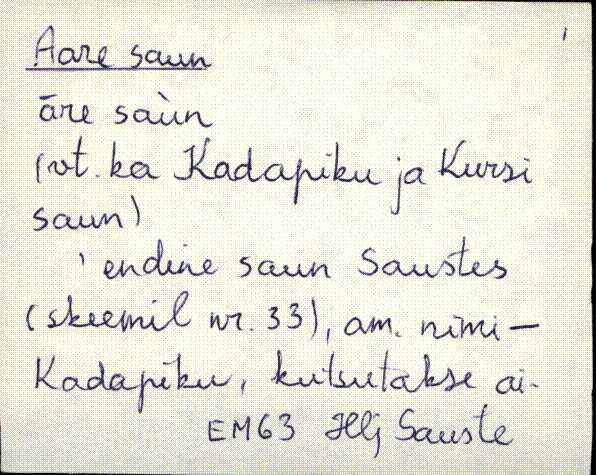 Aare saun
āre saùn
(vt. ka Kadapiku ja Kursi
saun)
' endine saun Saustes
(skeemil nr. 33), am. nimi –
Kadapiku, kutsutakse ai-
EM63 Hlj Sauste